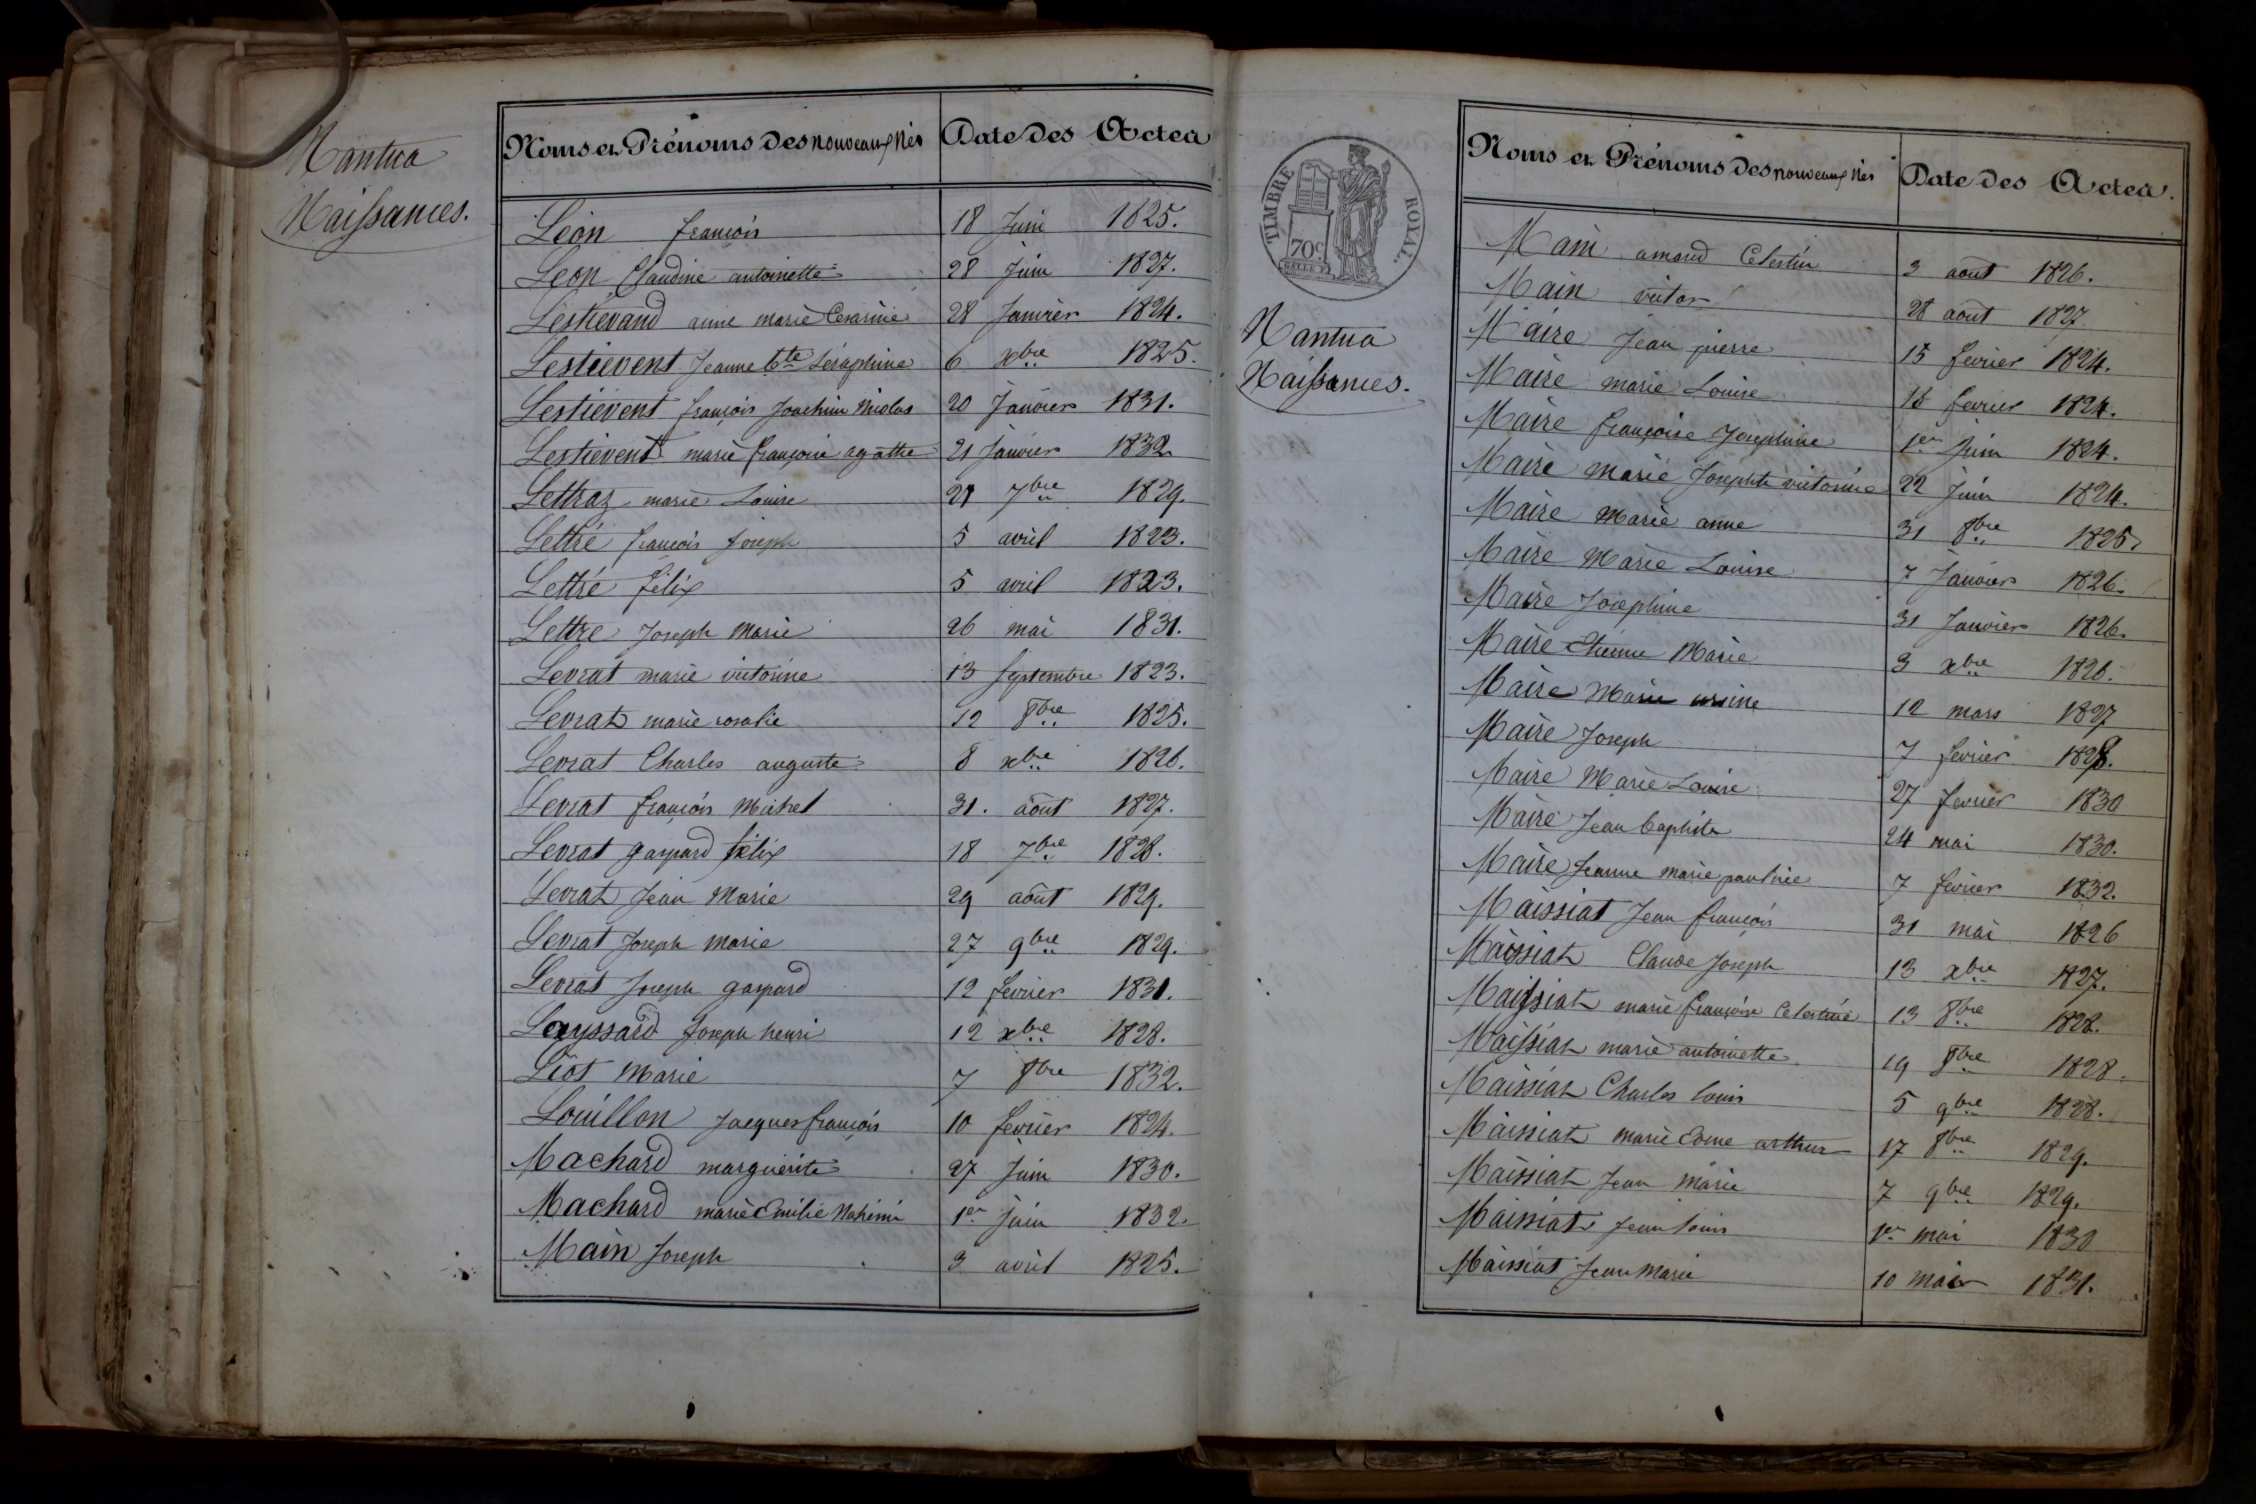 Nantua
Naissances.
Noms et Prénoms des nouveaux Nés Date des Actes
Léon françois 18 Juin 1825.
Léon Claudine antoinette 28 Juin 1827.
Lestievand anne marie Cesarine 28 Janvier 1824.
Lestievent Jeanne bte Séraphine 6 xbre 1825.
Lestievent françois Joachim Nicolas 20 Janvier 1831.
Lestievent marie françoise agathe 21 Janvier 1832
Lettraz marie Louise 21 7bre 1829.
Lettré françois Joseph 5 avril 1823.
Lettré félix 5 avril 1823.
Lettre Joseph Marie 26 mai 1831.
Levrat marie victorine 13 Septembre 1823.
Levrat marie rosalie 12 8bre 1825.
Levrat Charles auguste 8 xbre 1826.
Levrat françois Michel 31. août 1827.
Levrat gaspard félix 18 7bre 1828.
Levrat Jean Marie 29 août 1829.
Levrat Joseph marie 27 9bre 1829.
Levrat Joseph gaspard 12 fevrier 1831.
Layssard Joseph henri 12 xbre 1828.
Liot Marie 7 8bre 1832.
Louillon Jacques françois 10 fevrier 1824.
Machard marguerite 27 Juin 1830.
Machard marie Emilie 1er Juin 1832.
Main Joseph 3 avril 1825.
TIMBRE ROYAL.
70c
Nantua
Naissances.
Noms et Prénoms des nouveaux Nés Date des Actes.
Main amand Celestin 3 août 1826.
Main victor 28 août 1827
Maire Jean pierre 15 fevrier 1824.
Maire marie Louise fevrier 1824.
Maire françoise Josephine 1er Juin 1824.
Maire marie Josephte victorine 22 Juin 1824.
Maire Marie anne 31 8bre 1825
Maire Marie Louise 7 Janvier 1826.
Maire Josephine 31 Janvier 1826.
Maire Etienne Marie 3 xbre 1826.
Maire Marie ursine 12 mars 1827
Maire Joseph 7 fevrier 1828.
Maire Marie Louise 27 fevrier 1830
Maire Jean baptiste 24 mai 1830.
Maire Jeanne marie pauline 7 fevrier 1832.
Maissiat Jean françois 31 mai 1826
Maissiat Claude Joseph 13 xbre 1827.
Maissiat marie françoise Celestine 13 8bre 1828.
Maissiat marie antoinette 19 8bre 1828.
Maissiat Charles louis 5 9bre 1828.
Maissiat marie Come arthur 17 8bre 1829.
Maissiat Jean marie 7 9bre 1829.
Maissiat Jean louis 1er mai 1830
Maissiat Jean Marie 10 1831.